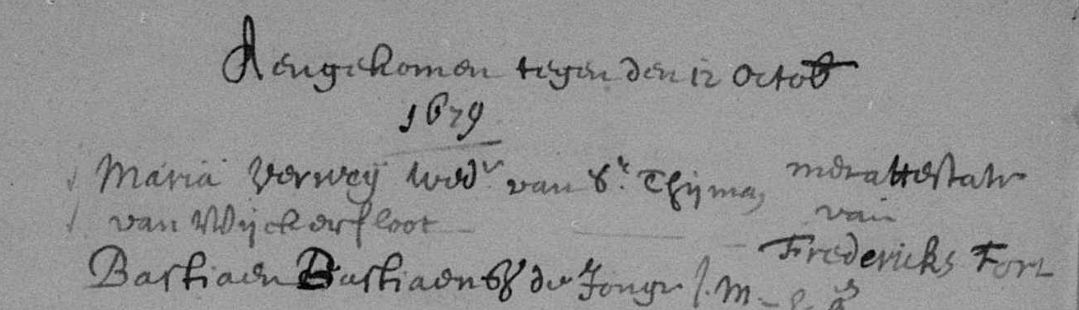 Aengekomen tegen den 12 Octob
1679
Maria Verweij wed.r van Sr. Thijmas met attestatie
van Wijckersloot van
Fredericks Fort
Bastiaen Bastiaensz de Jonge J.M.